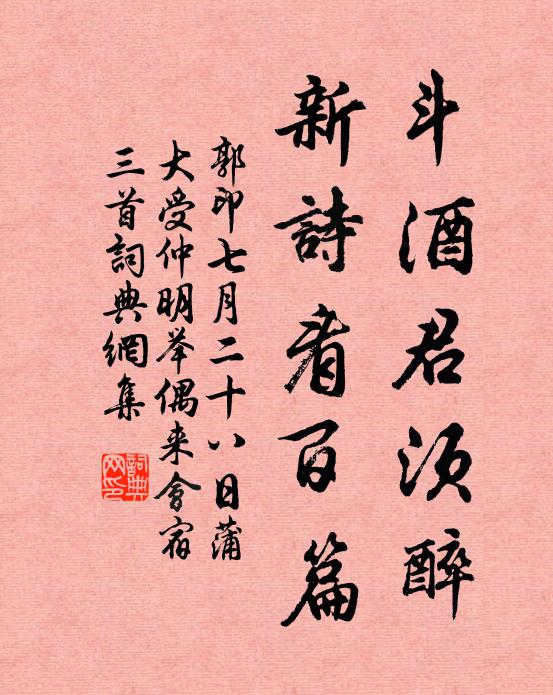 斗酒君须醉
新詩看百篇
郭印七月二十八日蒲
大受仲明举偶来會宿
三首詞典網集
詞典網印